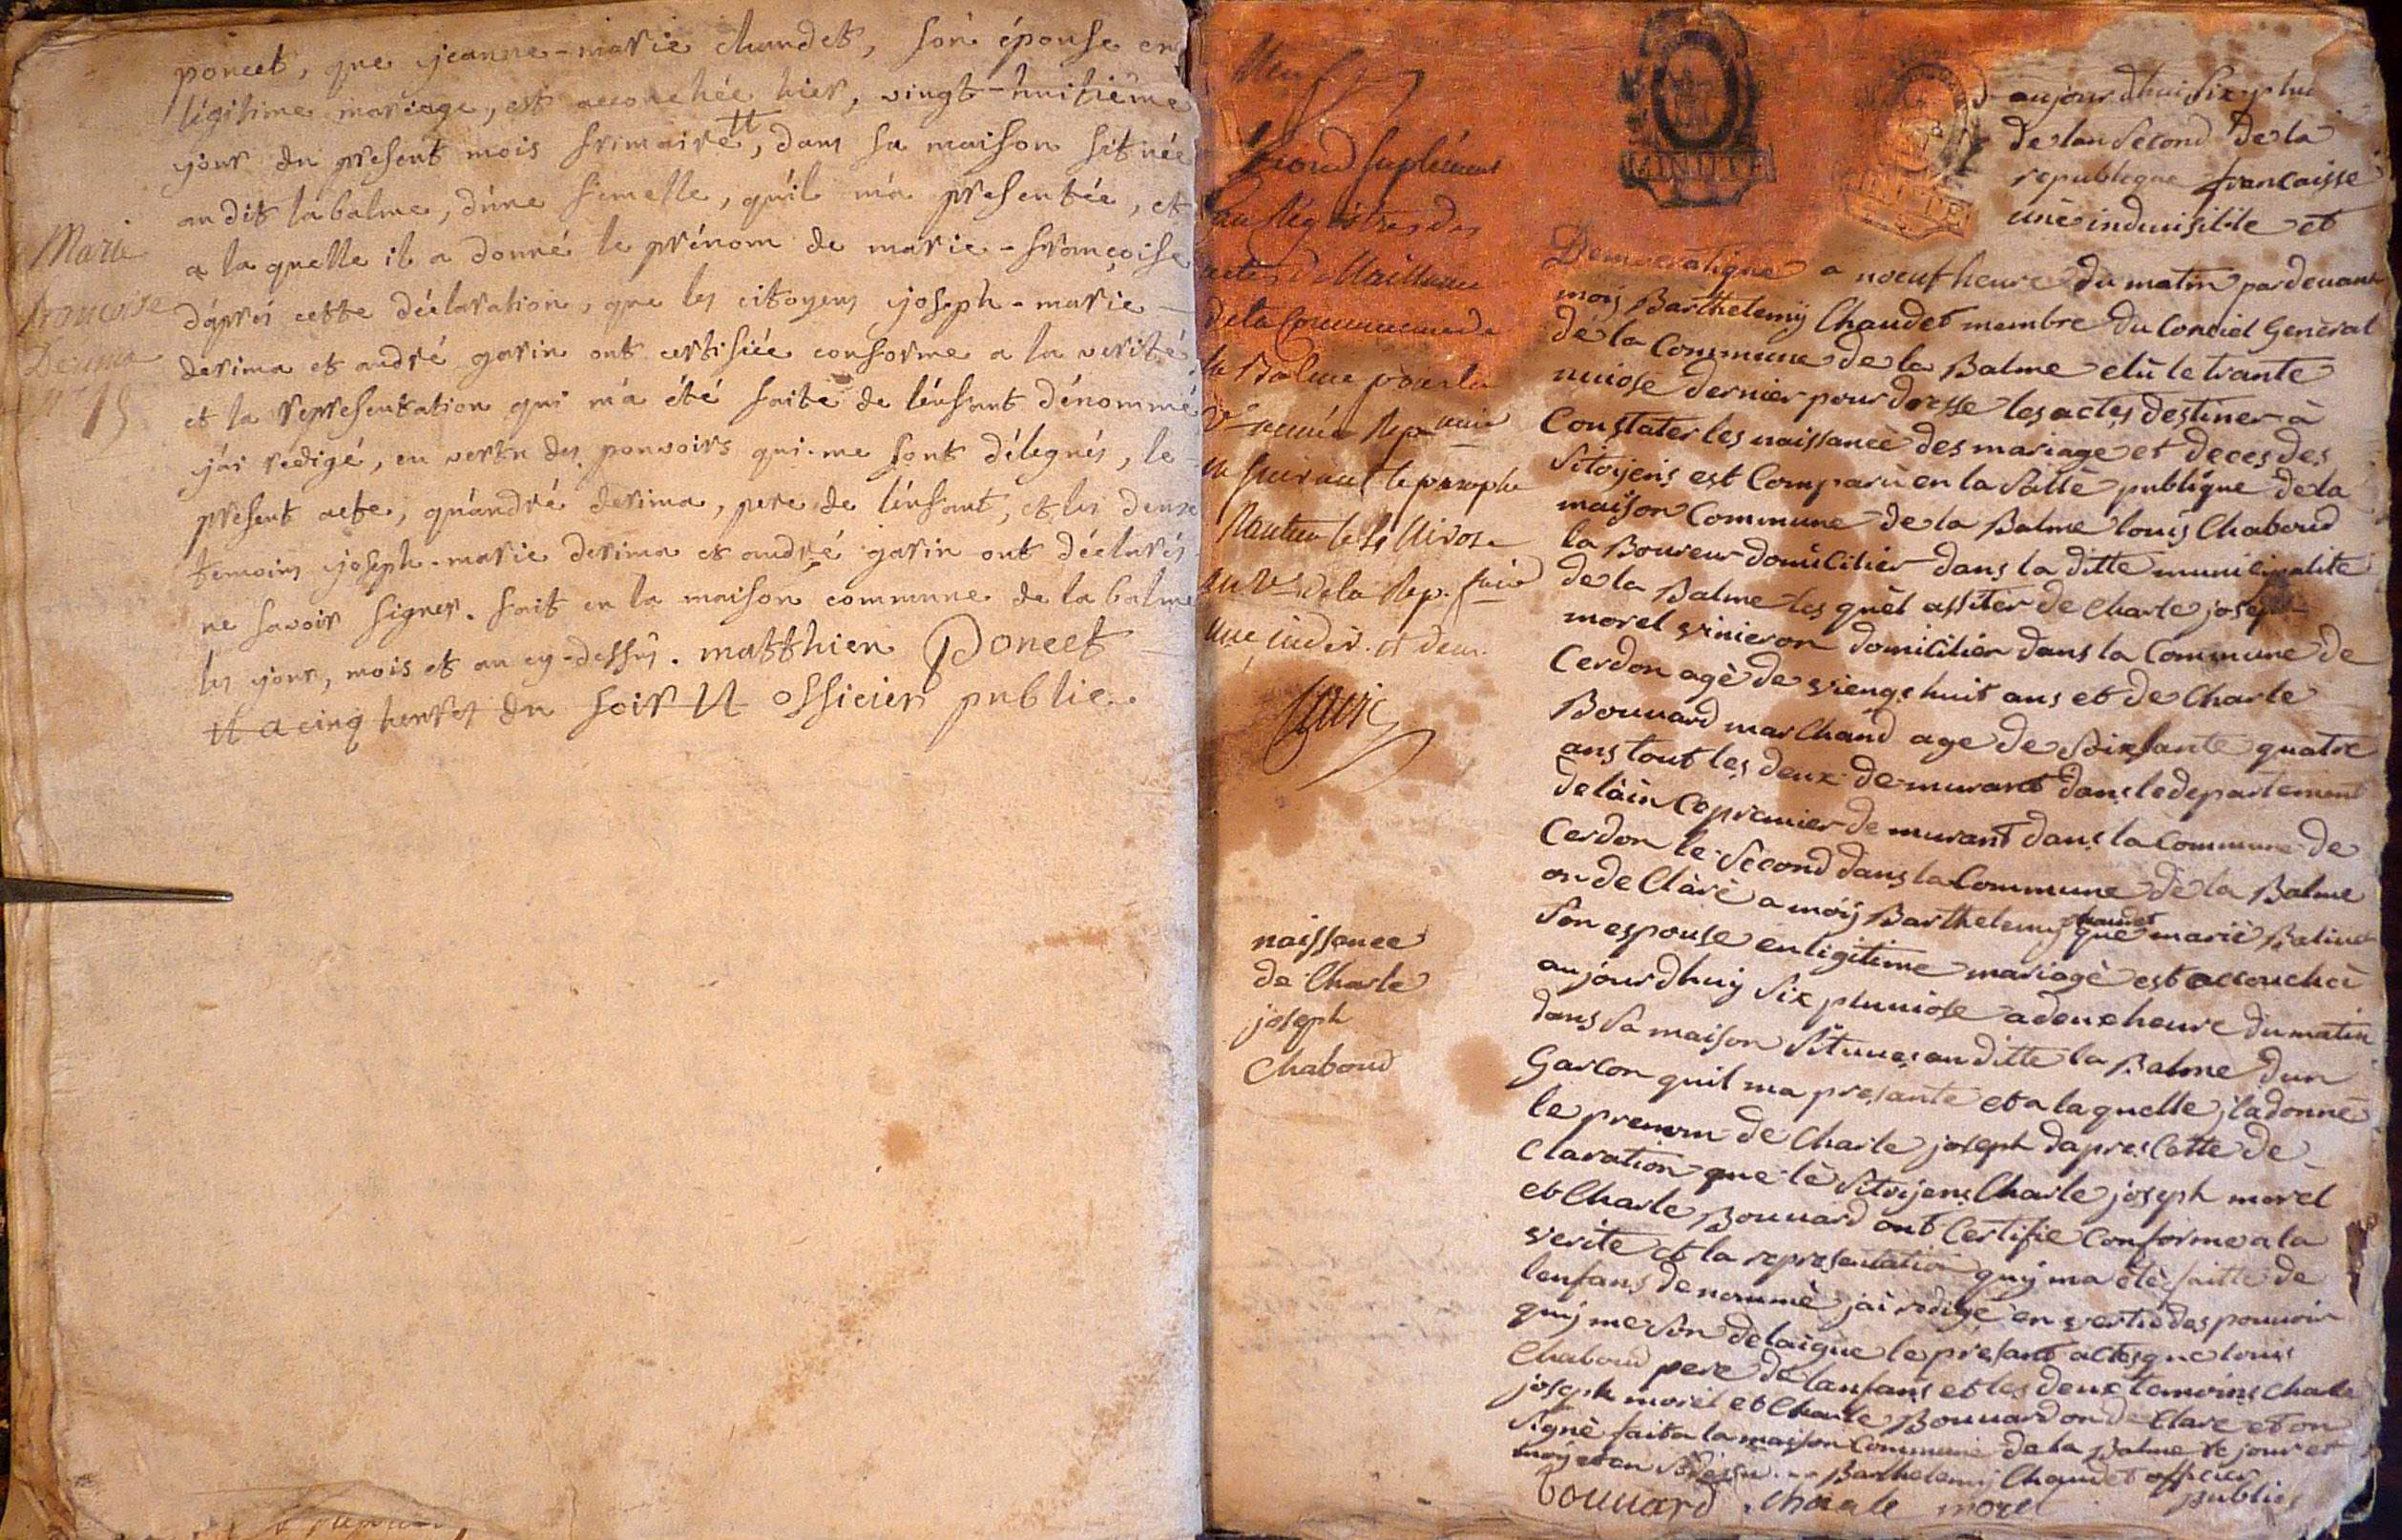 poncet, que jeanne-marie chaudet, son épouse en
légitime mariage, est accouchée hier, vingt-huitième
jour du present mois frimaire, dans sa maison située
au dit la balme, d'une femelle, qu'il m'a presentée, et
a la quelle il a donné le prénom de marie-françoise
d'après cette déclaration, que les citoyens joseph-marie
derima et andré garin ont certifiée conforme a la verité
et la representation qui m'a été faite de l'enfant dénommé
j'ai redigé, en vertu des pouvoirs qui me sont délegués, le
present acte, qu'andré derima, pere de l'enfant, et les deux
temoins joseph-marie derima et andré garin ont déclarés
ne savoir signer. fait en la maison commune de la balme
les jour, mois et an cy-dessus. matthieu Poncet
a cinq heures du soir officier public.
Marie
Derima
Second suplément
au Régistre des
de la Commune de
la Balme pour la
Nantua le
de la Rep.
une indiv. et dem.
naissance
de Charle
joseph
Chaboud
MINUTE
aujourdhui six plu
de lan second de la
republique francaisse
une induisible et
Democratique a noeuf heure du matin pardeuant
moij Barthelemij Chaudet membre du Conciel General
de la Commune de la Balme elù le trante
niuose dernier pour dresse les actes destiner à
Constater les naissance des mariage et deces des
sitoijens est Comparù en la salle publique de la
maison Commune de la Balme louis Chaboud
la Boureur domicilier dans la ditte municipalite
de la Balme les quèl assiter de Charle joseph
morel vinieron domicilier dans la Commune de
Cerdon agè de viengs huit ans et de Charle
Bouuard marchand age de soixsante quatre
ans tout les deux demurant dans le departement
de làin Ce premier de murant dans la Commune de
Cerdon le second dans la Commune de la Balme
on de Clàrè a moij Barthelemij chaudet que marie
son espouse en ligitime mariagè est accouchèe
aujourdhuij six pluuiose a deux heure du matin
dans sa maison situues au ditte la Balme dun
Garcon quil ma presante et a la quelle jl a donnè
le prenom de Charle joseph dapres Cette de
Claration que lè sitoijens Charle joseph morel
et Charle Bouuard ont Certifie Conforme a la
verite et la representation quij ma étè faitte de
lenfans denommè jai redige en vertu des pouuoir
quij me son delaigue le présant actes que louis
Chaboud pere de lanfans et les deux temoins Charle
joseph morel et Charle Bouuard on de Clare et on
signè fait a la maison Commune de la Balme le jour et
Barthelemij Chaudet officier
public
bouuard charle morel